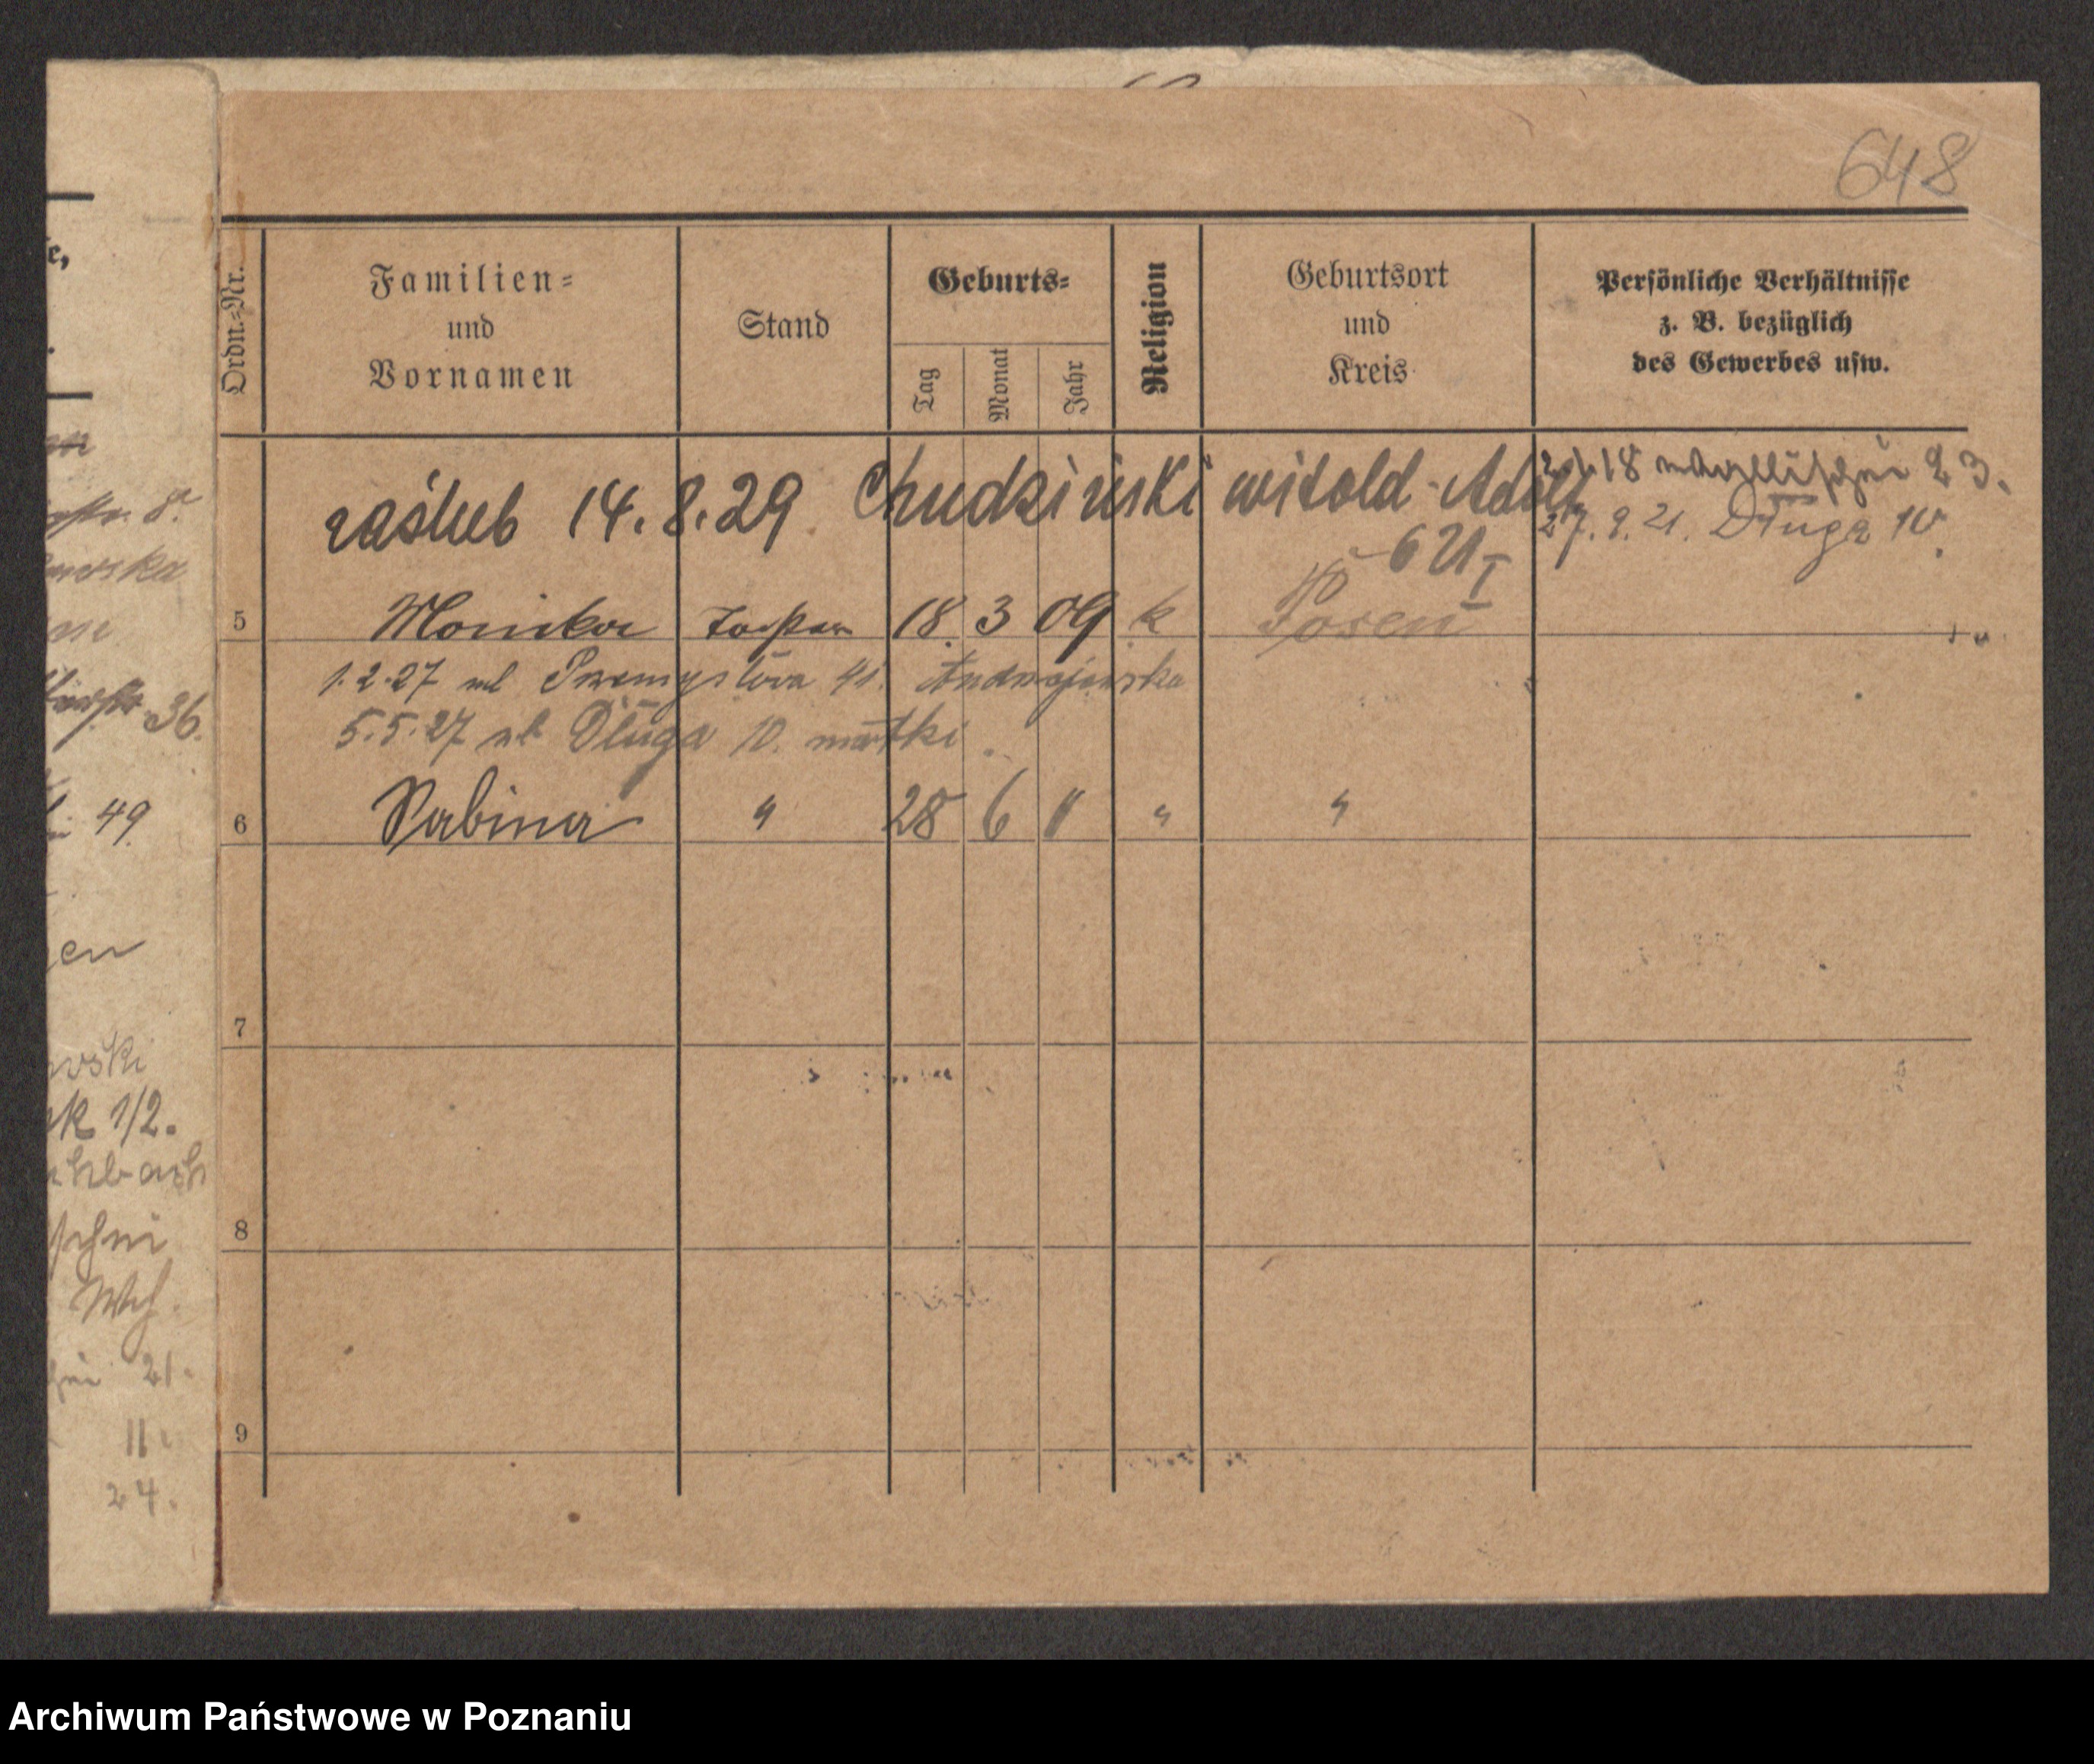 648
Ordn.-Nr.
Familien-
und
Vornamen
Stand
Geburts-
Tag
Monat
Jahr
Religion
Geburtsort
und
Kreis
Persönliche Verhältnisse
z. B. bezüglich
des Gewerbes usw.
zaślub 14.8.29 Chudziński Witold-Adolf
18 23.
27.9.21. Długa 10.
5 Monika 18 3 09 k Posen
1.2.27 Przemysłowa 41.
5.5.27 Długa 10. matki.
6 Sabina " 28 6 " " "
7
8
9
e,
str. 8.
ewska
36.
49
en
wski
1/2.
hbach
schni
21.
11.
24.
Archiwum Państwowe w Poznaniu